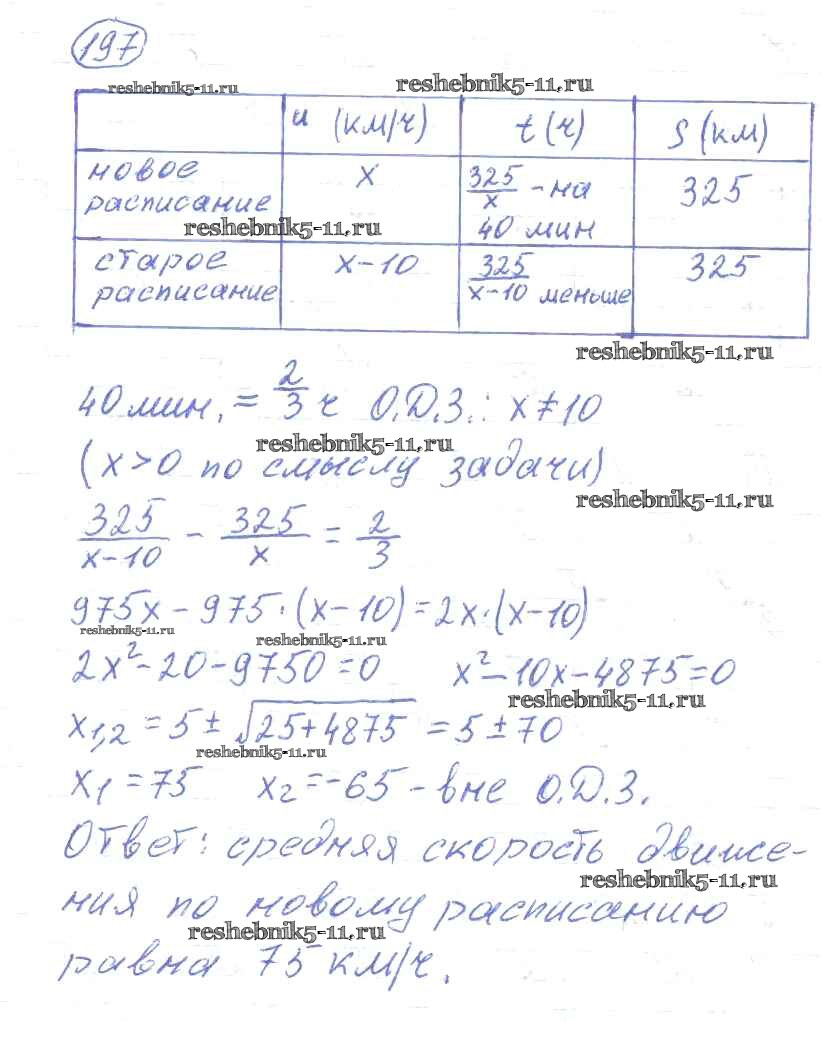 197
reshebnik5-11.ru reshebnik5-11.ru
u (км/ч) t (ч) S (км)
новое расписание x 325/x - на 40 мин 325
reshebnik5-11.ru
старое расписание x-10 325/x-10 меньше 325
reshebnik5-11.ru
40 мин. = 2/3 ч О.Д.З.: x≠10
reshebnik5-11.ru
(x>0 по смыслу задачи)
reshebnik5-11.ru
325/x-10 - 325/x = 2/3
975x - 975·(x-10) = 2x·(x-10)
reshebnik5-11.ru reshebnik5-11.ru
2x²-20-9750=0 x²-10x-4875=0
reshebnik5-11.ru
x1,2 = 5 ± √25+4875 = 5±70
reshebnik5-11.ru
x1 = 75 x2 = -65 - вне О.Д.З.
Ответ: средняя скорость движе-
reshebnik5-11.ru
ния по новому расписанию
reshebnik5-11.ru
равна 75 км/ч.